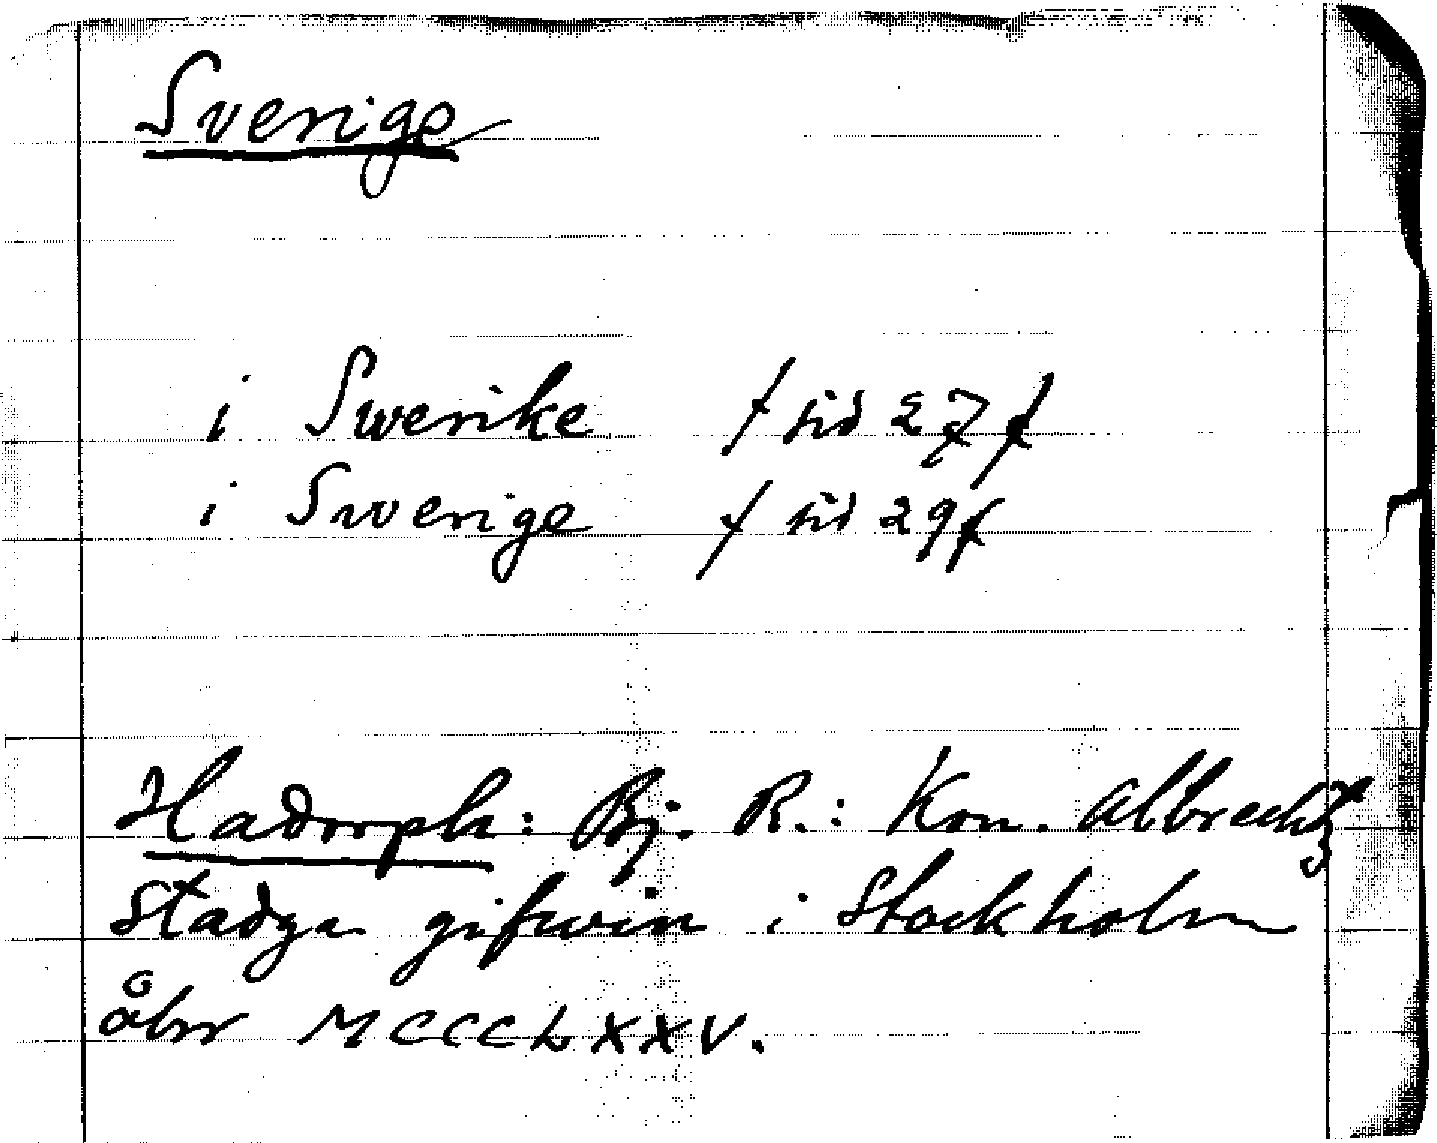 Sverige
i Swerike / sid 27 /
i Swerige / sid 29 /
Hadorph: Bj. R.: Kon. Albrechtz
Stadga gifwin i Stockholm
åhr MCCCLXXV.